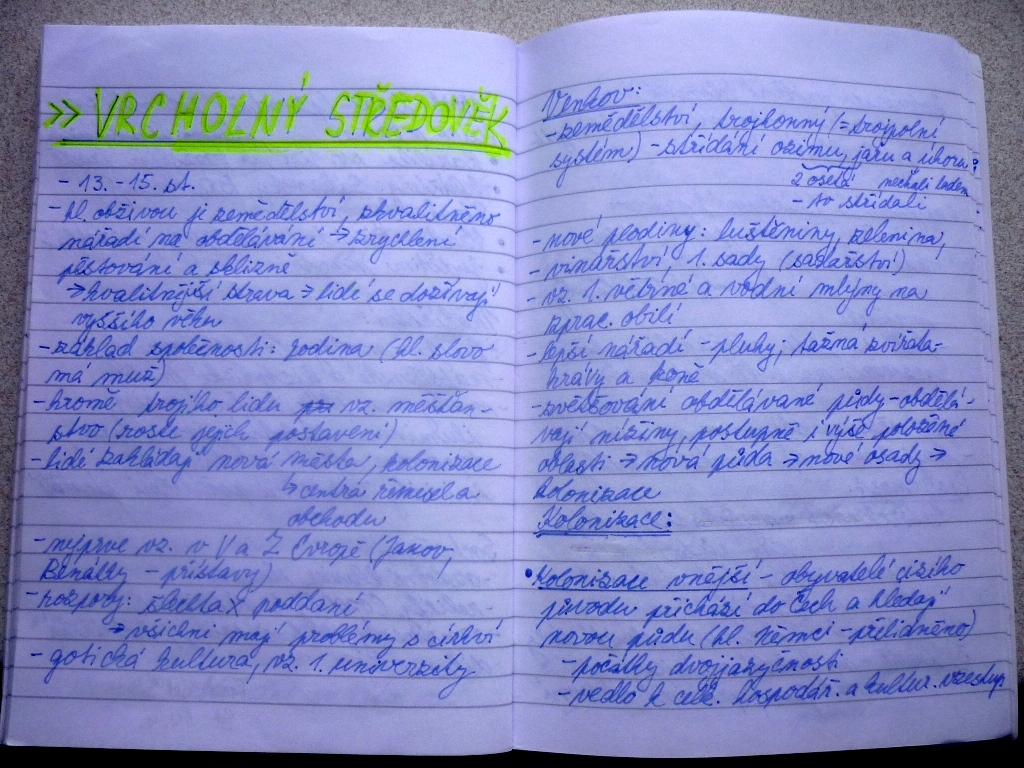 >> VRCHOLNÝ STŘEDOVĚK
- 13. - 15. st.
- hl. obživou je zemědělství, zkvalitněno
nářadí na obdělávání → zrychlení
pěstování a sklizně
→ kvalitnější strava → lidé se dožívají
vyššího věku
- základ společnosti: rodina (hl. slovo
má muž)
- kromě trojího lidu vz. měšťan-
stvo (roste jejich postavení)
- lidé zakládají nová města, kolonizace
↳ centra řemesel a
obchodu
- nejprve vz. v V a Z Evropě (Janov,
Benátky - přístavy)
- rozpory: šlechta X poddaní
→ všichni mají problémy s církví
- gotická kultura, vz. 1. univerzity
Venkov:
- zemědělství, trojhonný (= trojpolní
systém) - střídání ozimu, jařu a úhoru:
2 osetá nechali ladem
- to střídali
- nové plodiny: luštěniny, zelenina,
- vinařství 1. sady (sadařství)
- vz. 1. větrné a vodní mlýny na
zprac. obilí
- lepší nářadí - pluhy; tažná zvířata-
krávy a koně
- zvětšování obdělávané půdy - obdělá-
vají nížiny, postupně i výše položené
oblasti → nová půda → nové osady →
kolonizace
Kolonizace:
• Kolonizace vnější - obyvatelé cizího
původu přichází do Čech a hledají
novou půdu (hl. Němci - přelidněno)
- počátky dvojjazyčnosti
- vedlo k celk. hospodář. a kultur. vzestup